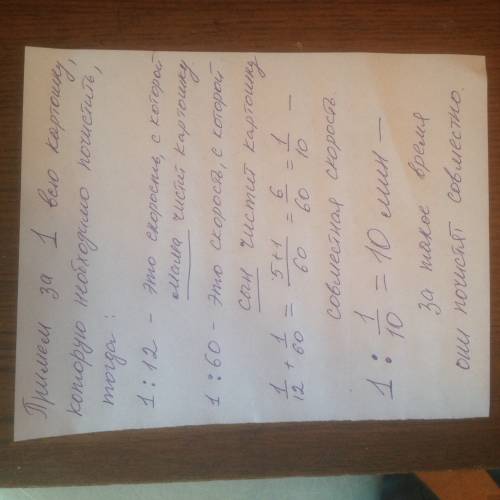 Примем за 1 всю картошку,
которую необходимо почистить,
тогда:
1 : 12 - это скорость, с которой
мама чистит картошку
1 : 60 - это скорость, с которой
сын чистит картошку
1/12 + 1/60 = 5+1/60 = 6/60 = 1/10 —
совместная скорость.
1 : 1/10 = 10 мин —
за такое время
они почистят совместно.